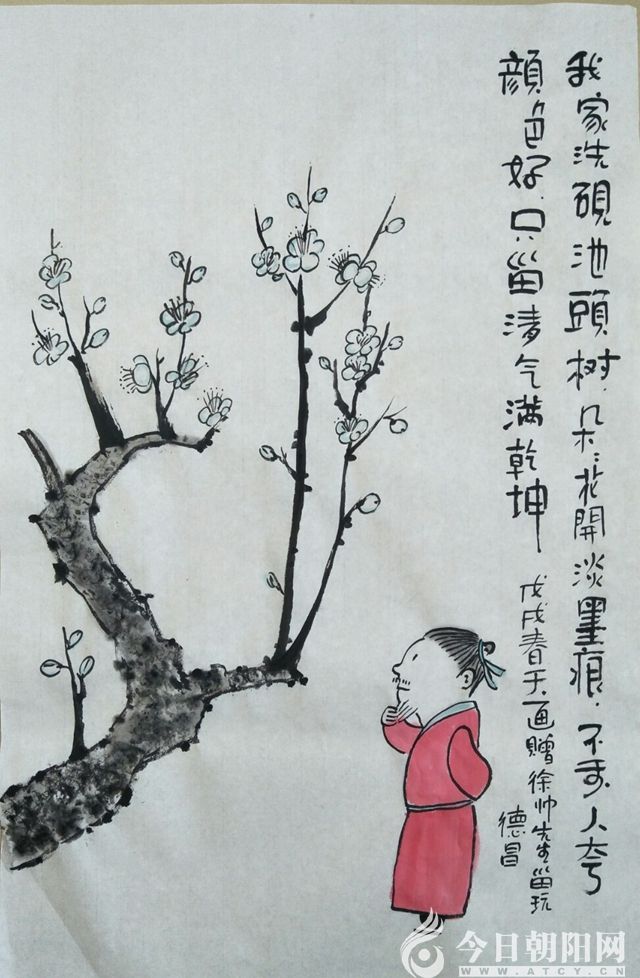 我家洗硯池頭树,朵々花開淡墨痕,不要人夸
顏色好,只畱清气满乾坤
戊戌春天画贈徐帅先生畱玩
德昌
今日朝阳网
WWW.ATCY.CN